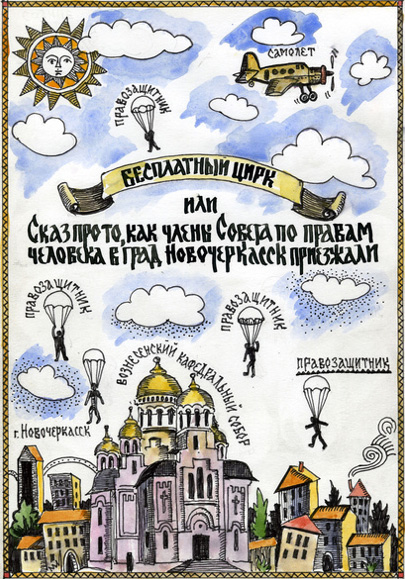 самолет
правозащитник
Бесплатный цирк
или
Сказ про то, как члены Совета по правам
человека в град Новочеркасск приезжали
правозащитник
правозащитник
Вознесенский кафедральный собор
правозащитник
г. Новочеркасск